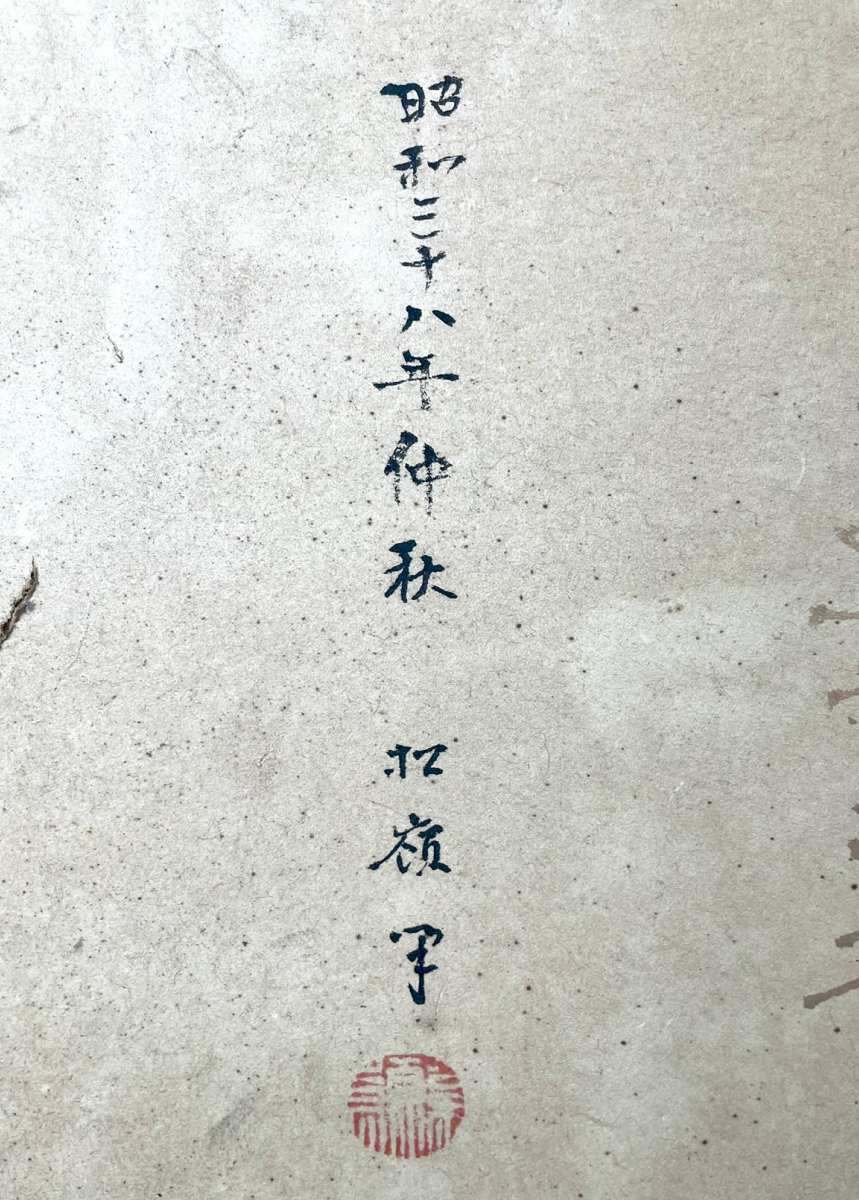 昭和三十八年仲秋 松嶺